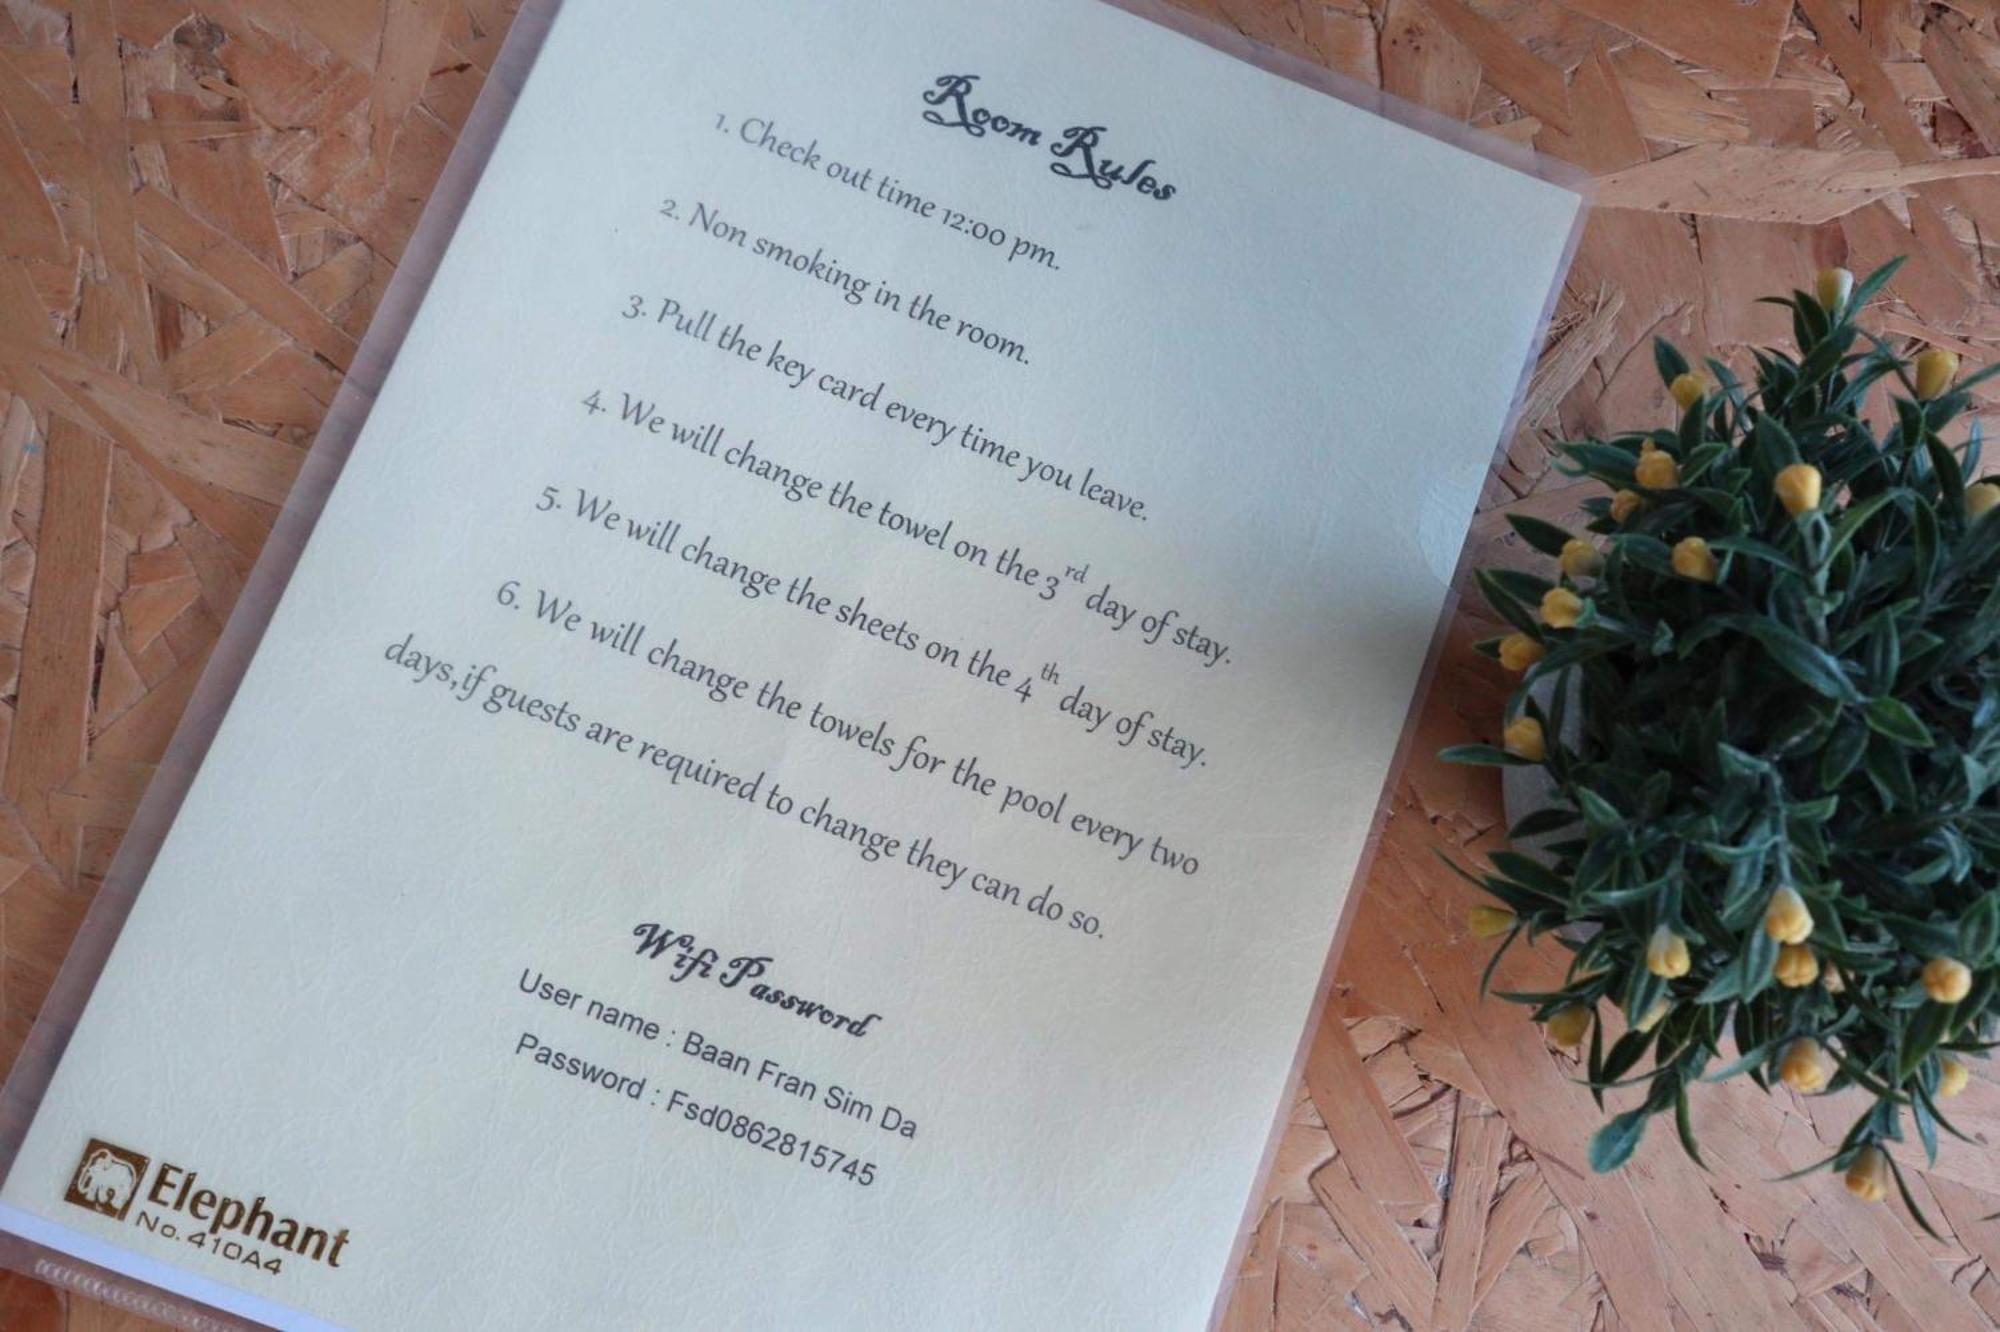 Room Rules
1. Check out time 12:00 pm.
2. Non smoking in the room.
3. Pull the key card every time you leave.
4. We will change the towel on the 3rd day of stay.
5. We will change the sheets on the 4th day of stay.
6. We will change the towels for the pool every two
days,if guests are required to change they can do so.
Wifi Password
User name : Baan Fran Sim Da
Password : Fsd0862815745
Elephant
No.410A4